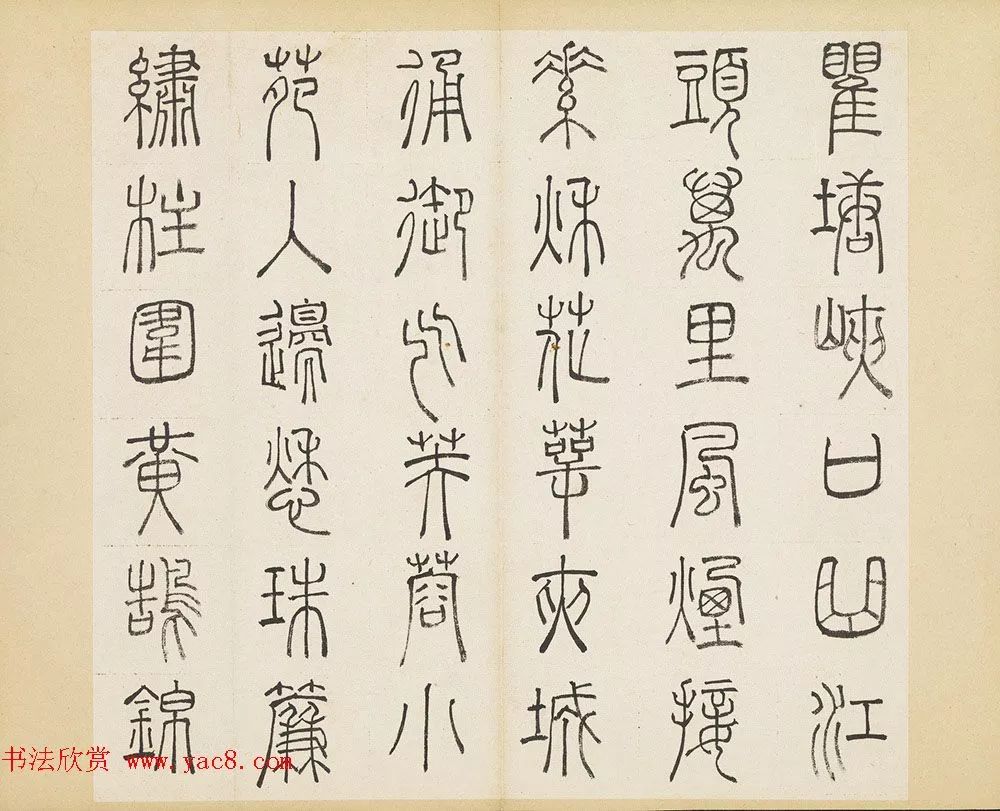 瞿塘峽口曲江
頭萬里風煙接
素秋花萼夾城
通御氣芙蓉小
苑入邊愁珠簾
繡柱圍黃鵠錦
书法欣赏 www.yac8.com